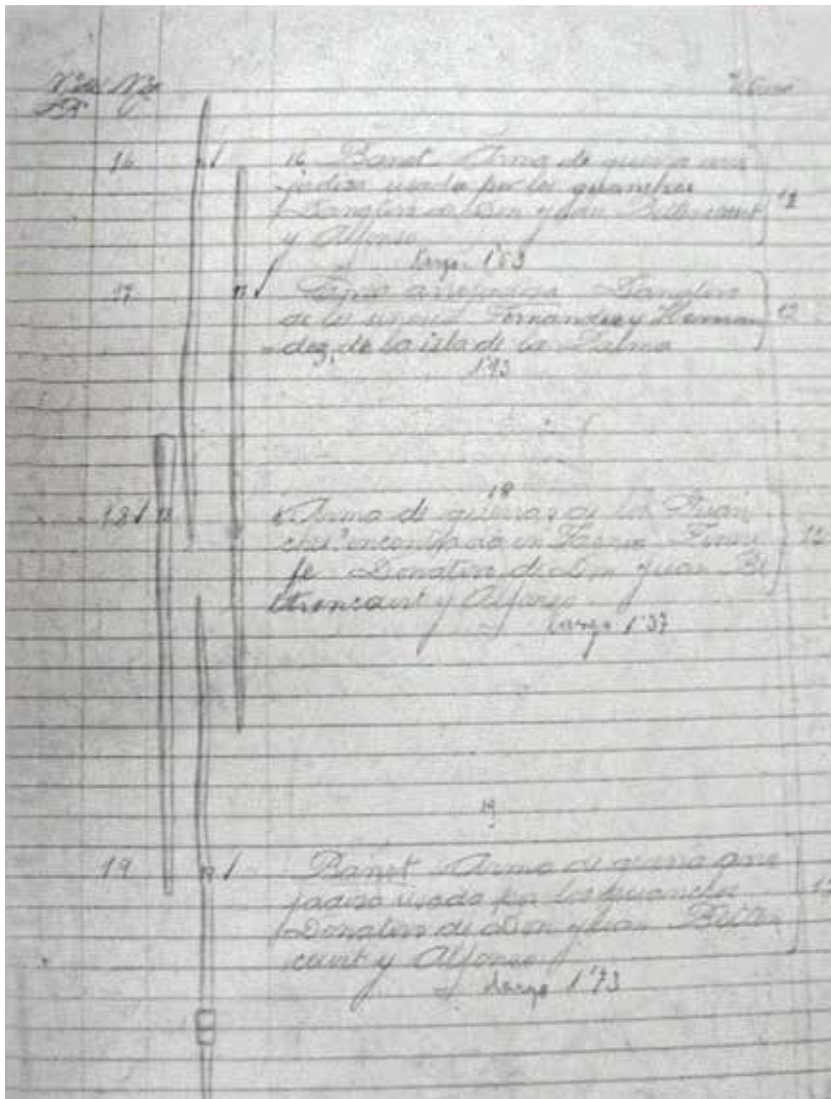 16 16 Banot Arma de guerra arro
jadisa usada por los guanches
Donativo de Don Juan Bethencourt 12
y Alfonso
largo 1'63
17 17 arrojadisa Donativo
de los señores Fernandez y Hernan 12
dez, de la isla de la Palma
1'93
18
18 18 Arma de guerra, de los Guan
ches encontrada en Teneri
fe Donativo de Don Juan Be
thencourt y Alfonso
largo 1'37
19
19 19 Banot Arma de guerra arro
jadisa usada por los guanches
Donativo de Don Juan Bethen
court y Alfonso
largo 1'73